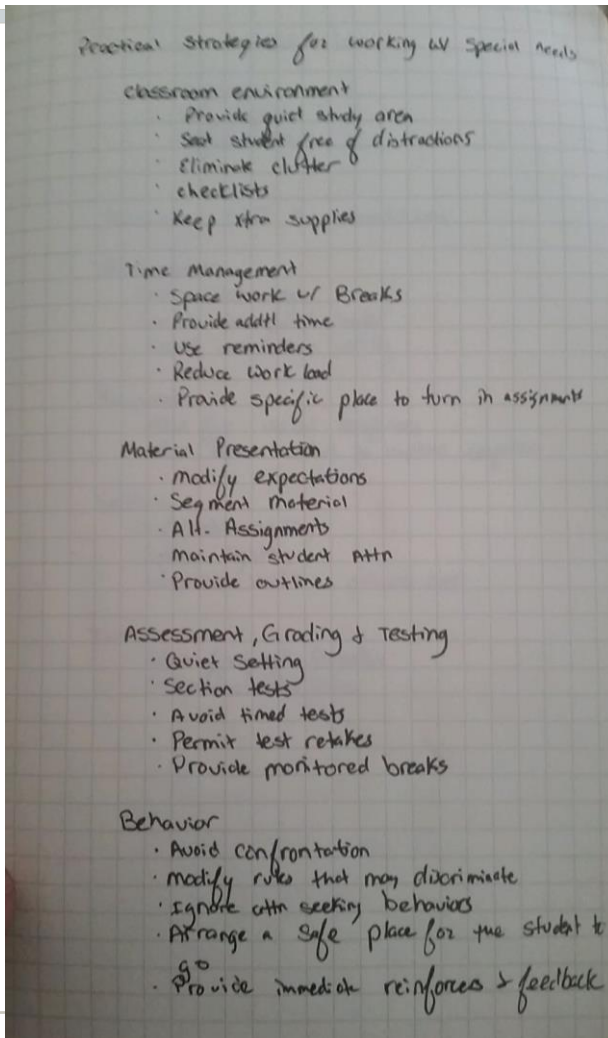 Practical Strategies for working w/ Special needs
classroom environment
· Provide quiet study area
· Seat student free of distractions
· Eliminate clutter
· checklists
· Keep xtra supplies
Time Management
· Space work w/ Breaks
· Provide addtl time
· Use reminders
· Reduce work load
· Provide specific place to turn in assignments
Material Presentation
· modify expectations
· Segment material
· Alt. Assignments
Maintain student Attn
· Provide outlines
Assessment, Grading & Testing
· Quiet Setting
· Section tests
· Avoid timed tests
· Permit test retakes
· Provide monitored breaks
Behavior
· Avoid confrontation
· modify rules that may discriminate
· Ignore attn seeking behaviors
· Arrange a safe place for the student to
go
· Provide immediate reinforces & feedback